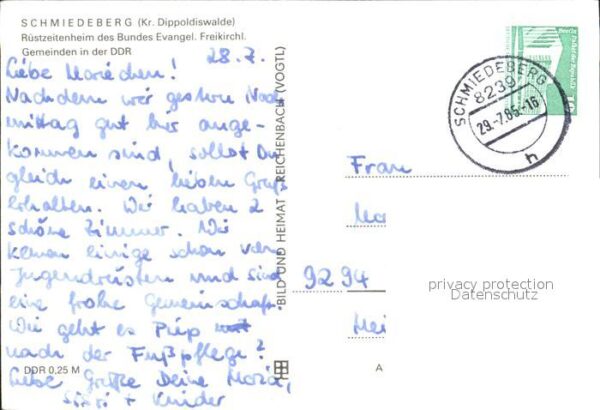 SCHMIEDEBERG (Kr. Dippoldiswalde)
Rüstzeitenheim des Bundes Evangel. Freikirchl.
Gemeinden in der DDR
28.7.
Liebe Mariechen!
Nachdem wir gestern Nach
mittag gut hier ange-
kommen sind, sollst Du
gleich einen lieben Gruß
erhalten. Wir haben 2
schöne Zimmer. Wir
kennen einige schon von
Jugendrüsten und sind
eine frohe Gemeinschaft
Wie geht es Piep
nach der Fußpflege?
Liebe Grüße Deine
+ Kinder
DDR 0,25 M
BILD UND HEIMAT REICHENBACH (VOGTL)
SCHMIEDEBERG
8239
29.-7.85.-16
h
Frau
Ma
9294
Mei
privacy protection
Datenschutz
A